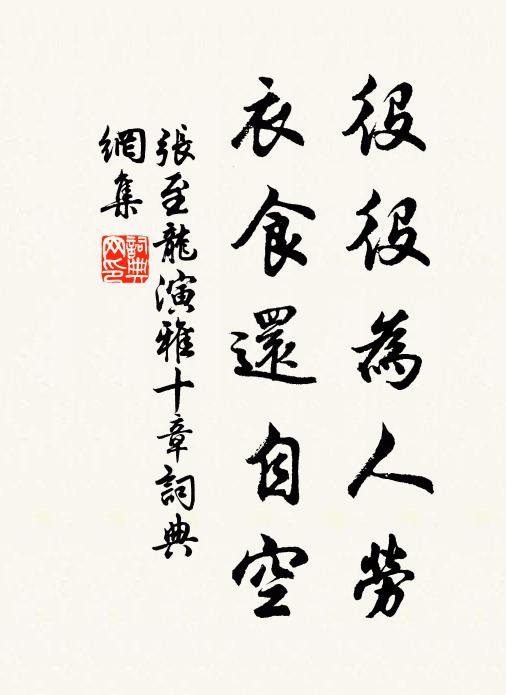 役役為人勞
衣食還自空
張至龍演雅十章詞典
網集
詞典
网印